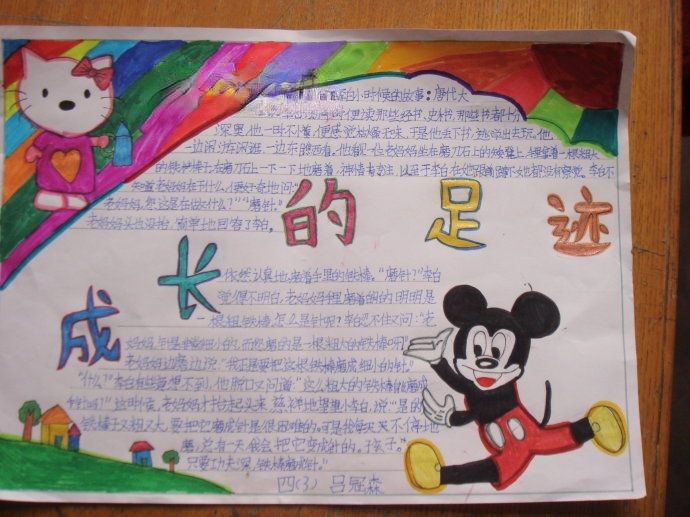 白小时候的故事：唐代大
时，便读那些经书、史书，那些书都十分
深奥，他一时不懂，便感觉枯燥无味，于是他丢下书，逃学出去玩。他
一边闲游闲逛，一边东瞧西看。他看见一位老妈妈坐在磨刀石上的矮凳上，手里拿着一根粗大
的铁棒子，在磨刀石上一下一下地磨着，神情专注，以至于李白在她跟前蹲下她都没有察觉。李白不
知道老妈妈在干什么，便好奇地问：
老妈妈，您这是在做什么？”“磨针。”
老妈妈头也没抬，简单地回答了李白。
成长的足迹
依然认真地磨着手里的铁棒。“磨针？”李白
觉得不明白，老妈妈手里磨着的明明是
一根粗铁棒，怎么是针呢？李白忍不住又问：“老
妈妈，针是非常细小的，而您磨的是一根粗大的铁棒呀！”
老妈妈边磨边说：“我正是要把这根铁棒磨成细小的针。”
“什么？”李白有些意想不到，他脱口又问道：“这么粗大的铁棒能磨成
针吗？”这时候，老妈妈才抬起头来，慈祥地望望小李白，说：“是的，
铁棒子又粗又大，要把它磨成针是很困难的。可是我每天不停地
磨，总有一天，我会把它变成针的。孩子。”
只要功夫深，铁棒磨成针。”
四(3) 吕冠森